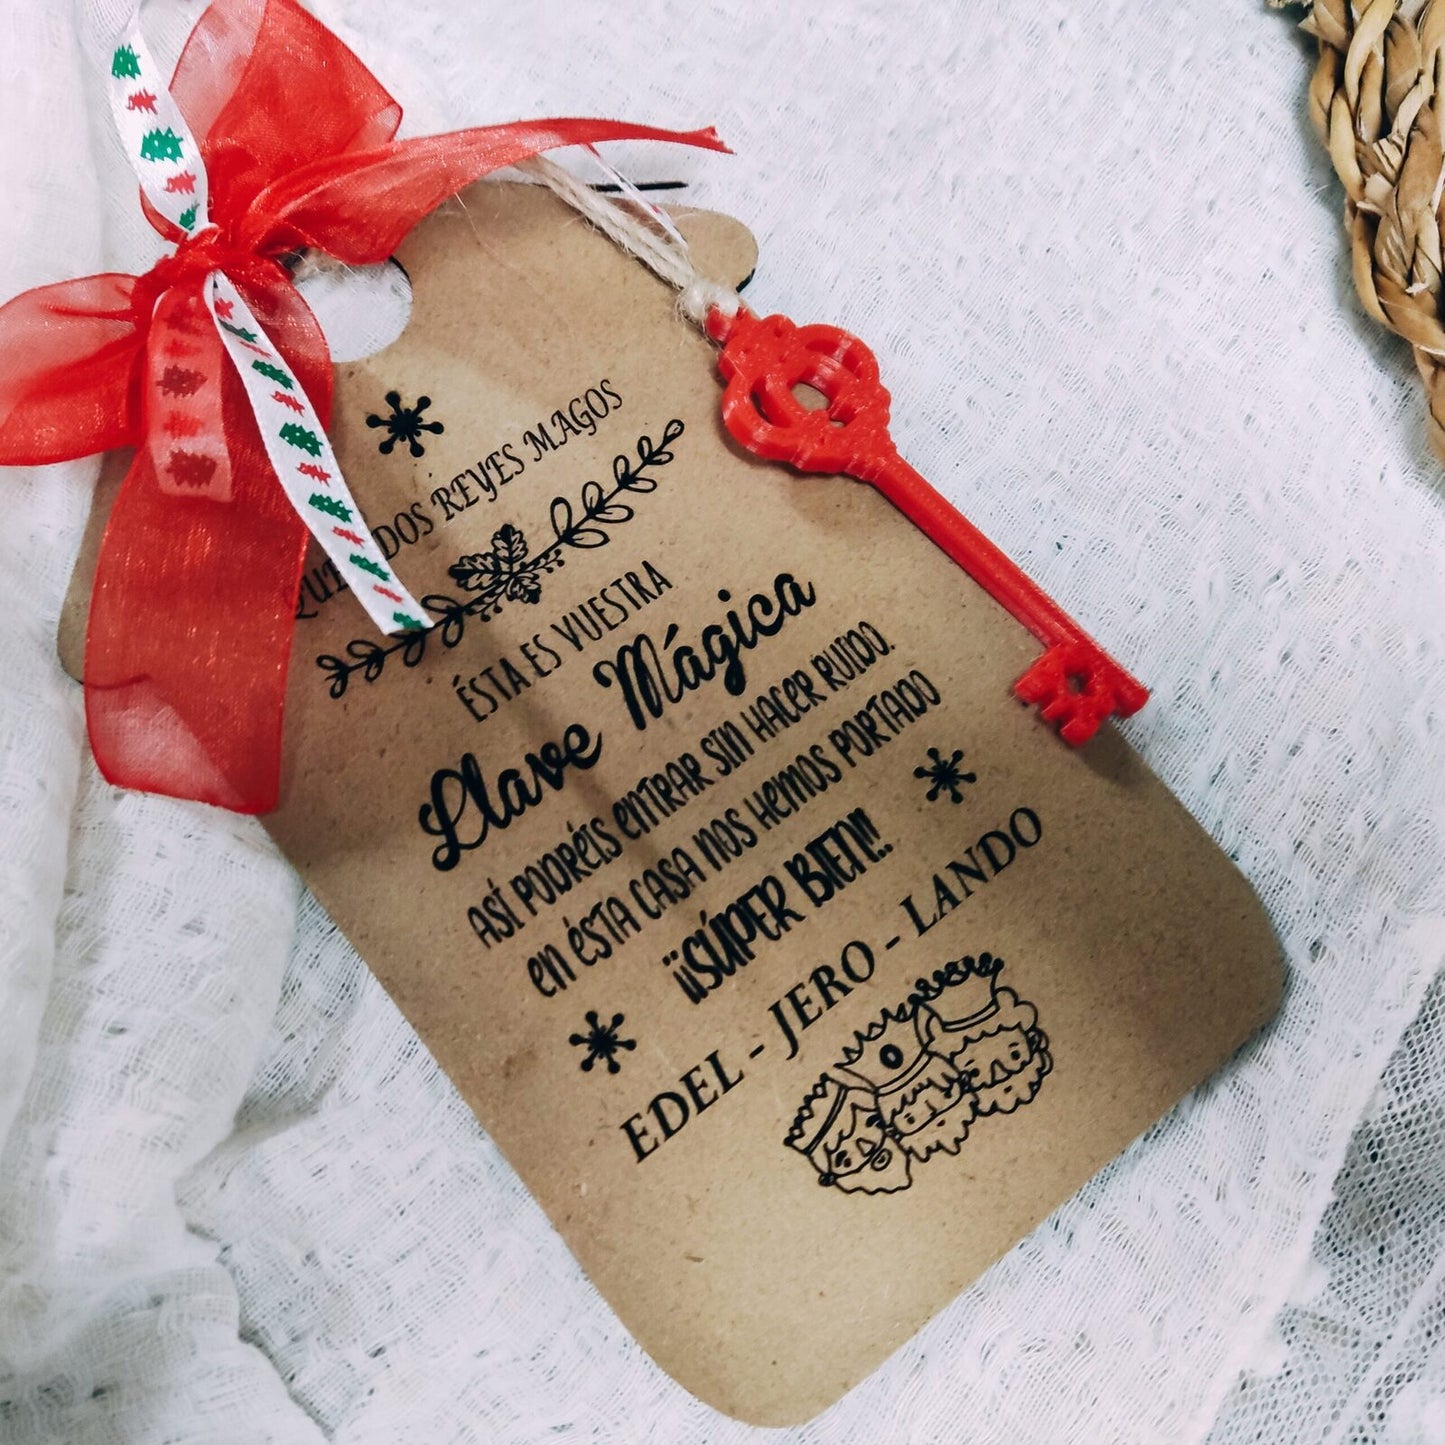 DOS REYES MAGOS
ÉSTA ES VUESTRA
Llave Mágica
ASÍ PODRÉIS ENTRAR SIN HACER RUIDO.
EN ÉSTA CASA NOS HEMOS PORTADO
¡¡SÚPER BIEN!!
EDEL - JERO - LANDO